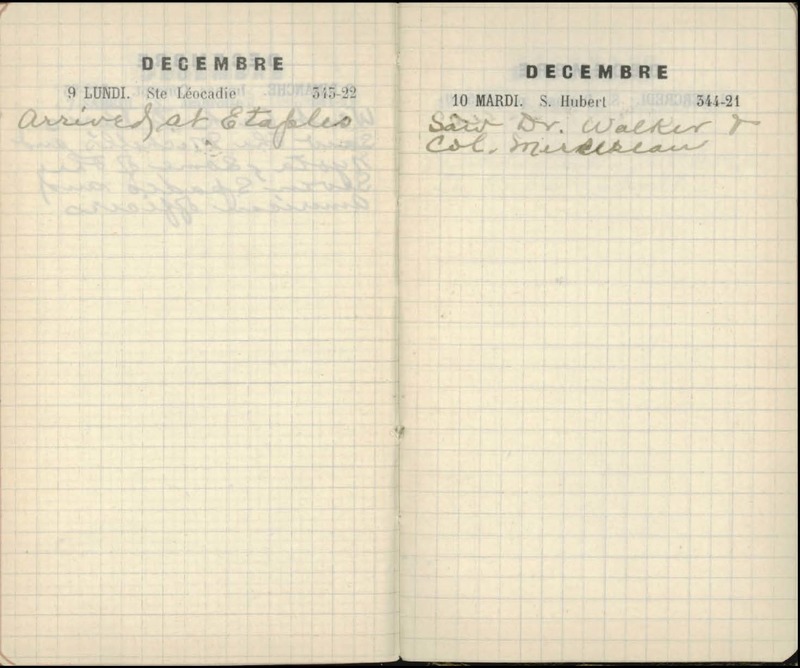 DECEMBRE
9 LUNDI. Ste Léocadie 343-22
Arrived at Etaples
DECEMBRE
10 MARDI. S. Hubert 344-21
Saw Dr. Walker &
Col.